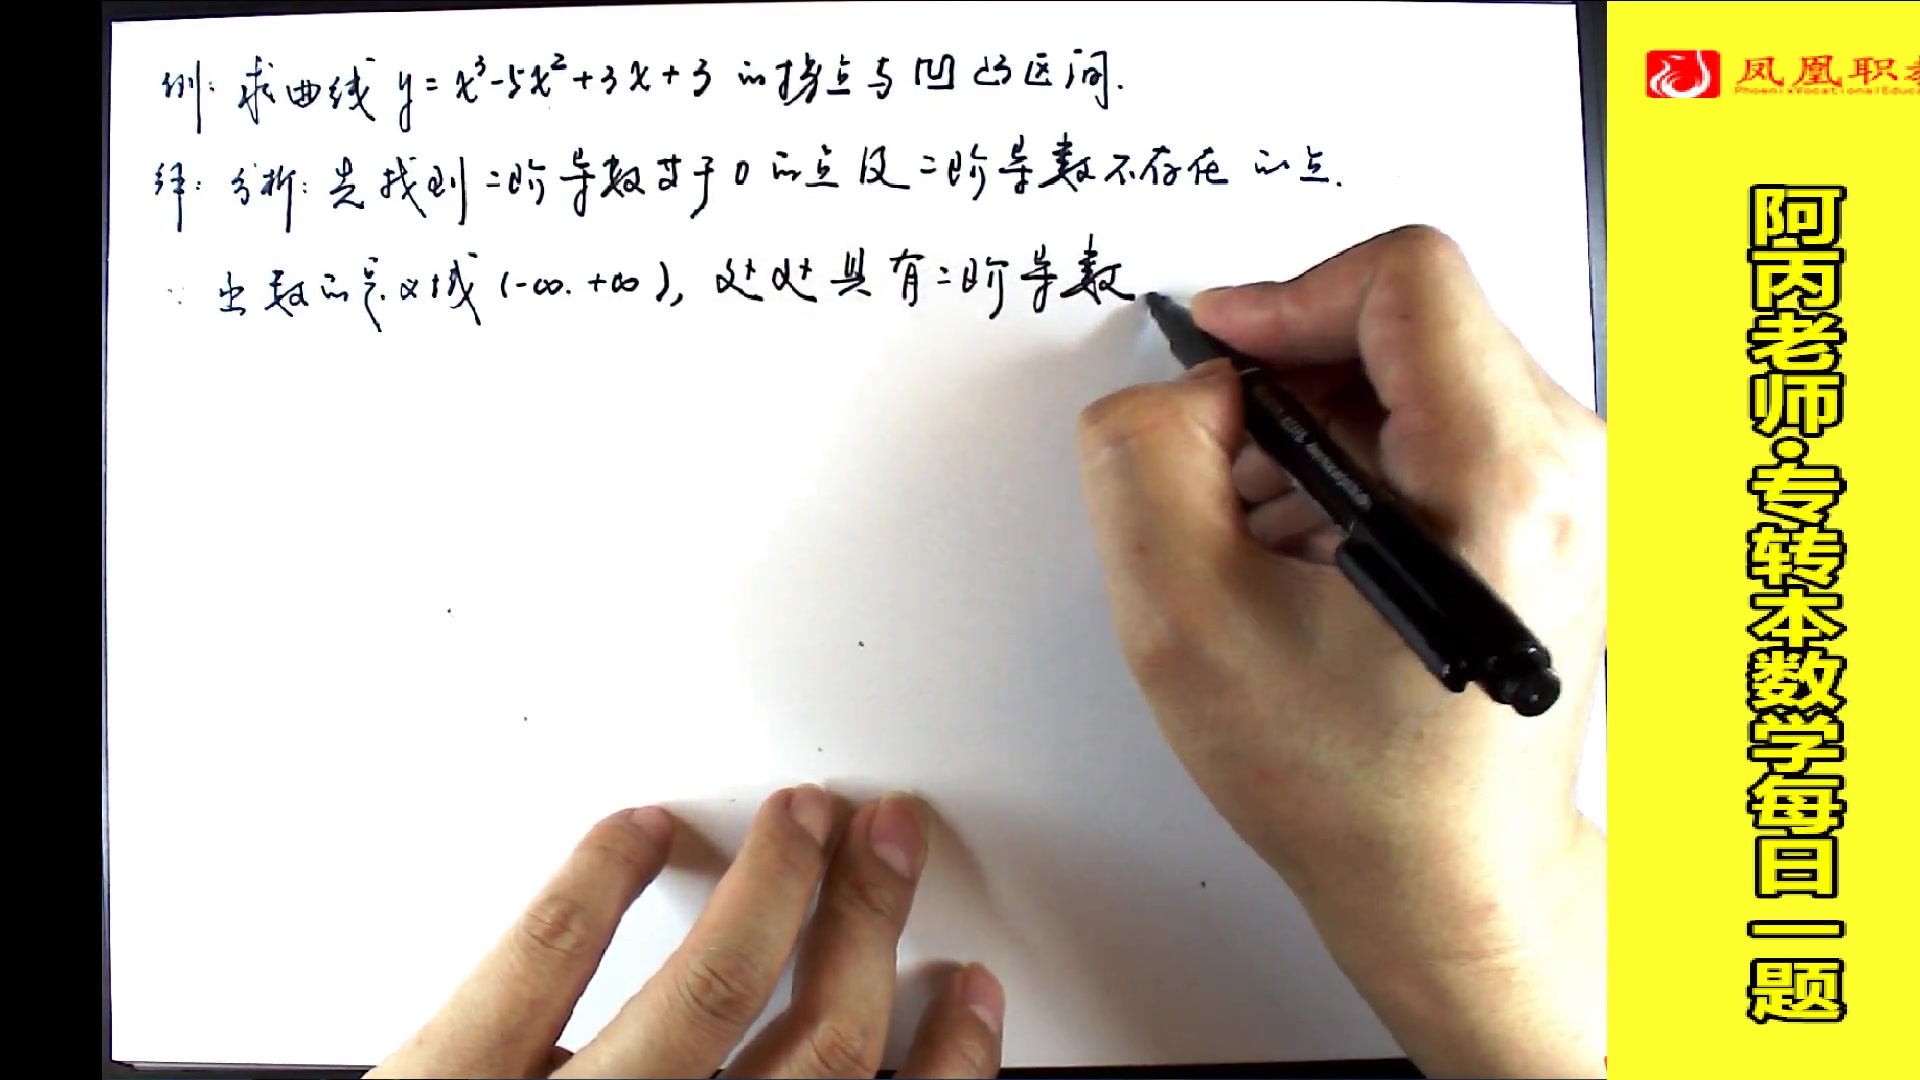 例: 求曲线 y = x³-5x²+3x+3 的拐点与凹凸区间.
解: 分析: 先找到二阶导数等于0的点及二阶导数不存在的点.
∵ 函数的定义域 (-∞.+∞), 处处具有二阶导数
凤凰职教
PhoenixVocationalEduca
阿丙老师·专转本数学每日一题